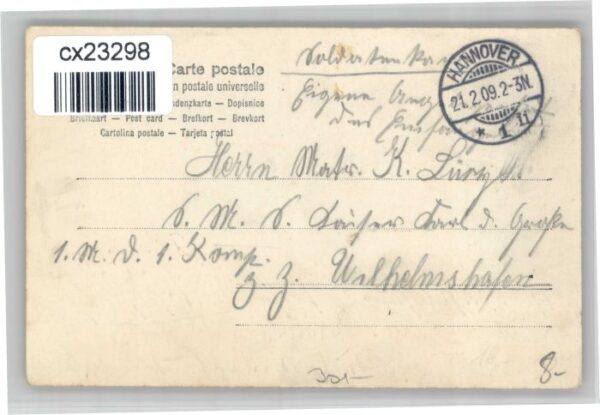 cx23298
Carte postale
n postale universelle
denzkarte — Dopisnice
Briefkaart — Post card — Brefkort — Brevkort
Cartolina postale — Tarjeta postal
Soldatenkar
Eigene Ang
des Empf
HANNOVER
21.2.09.2-3N.
* 1 II
Herrn Matr. K.
S. M. S. Kaiser Karl d. Große
1. M. D. 1. Komp.
z. Z. Wilhelmshafen
8-